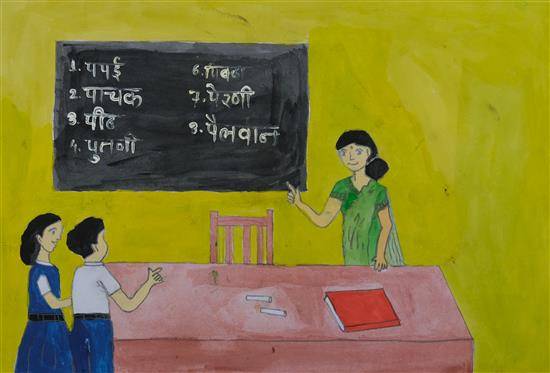 १. पपई
२. पाचक
३. पीठ
४.
६.
७. पेरणी
८. पैलवान